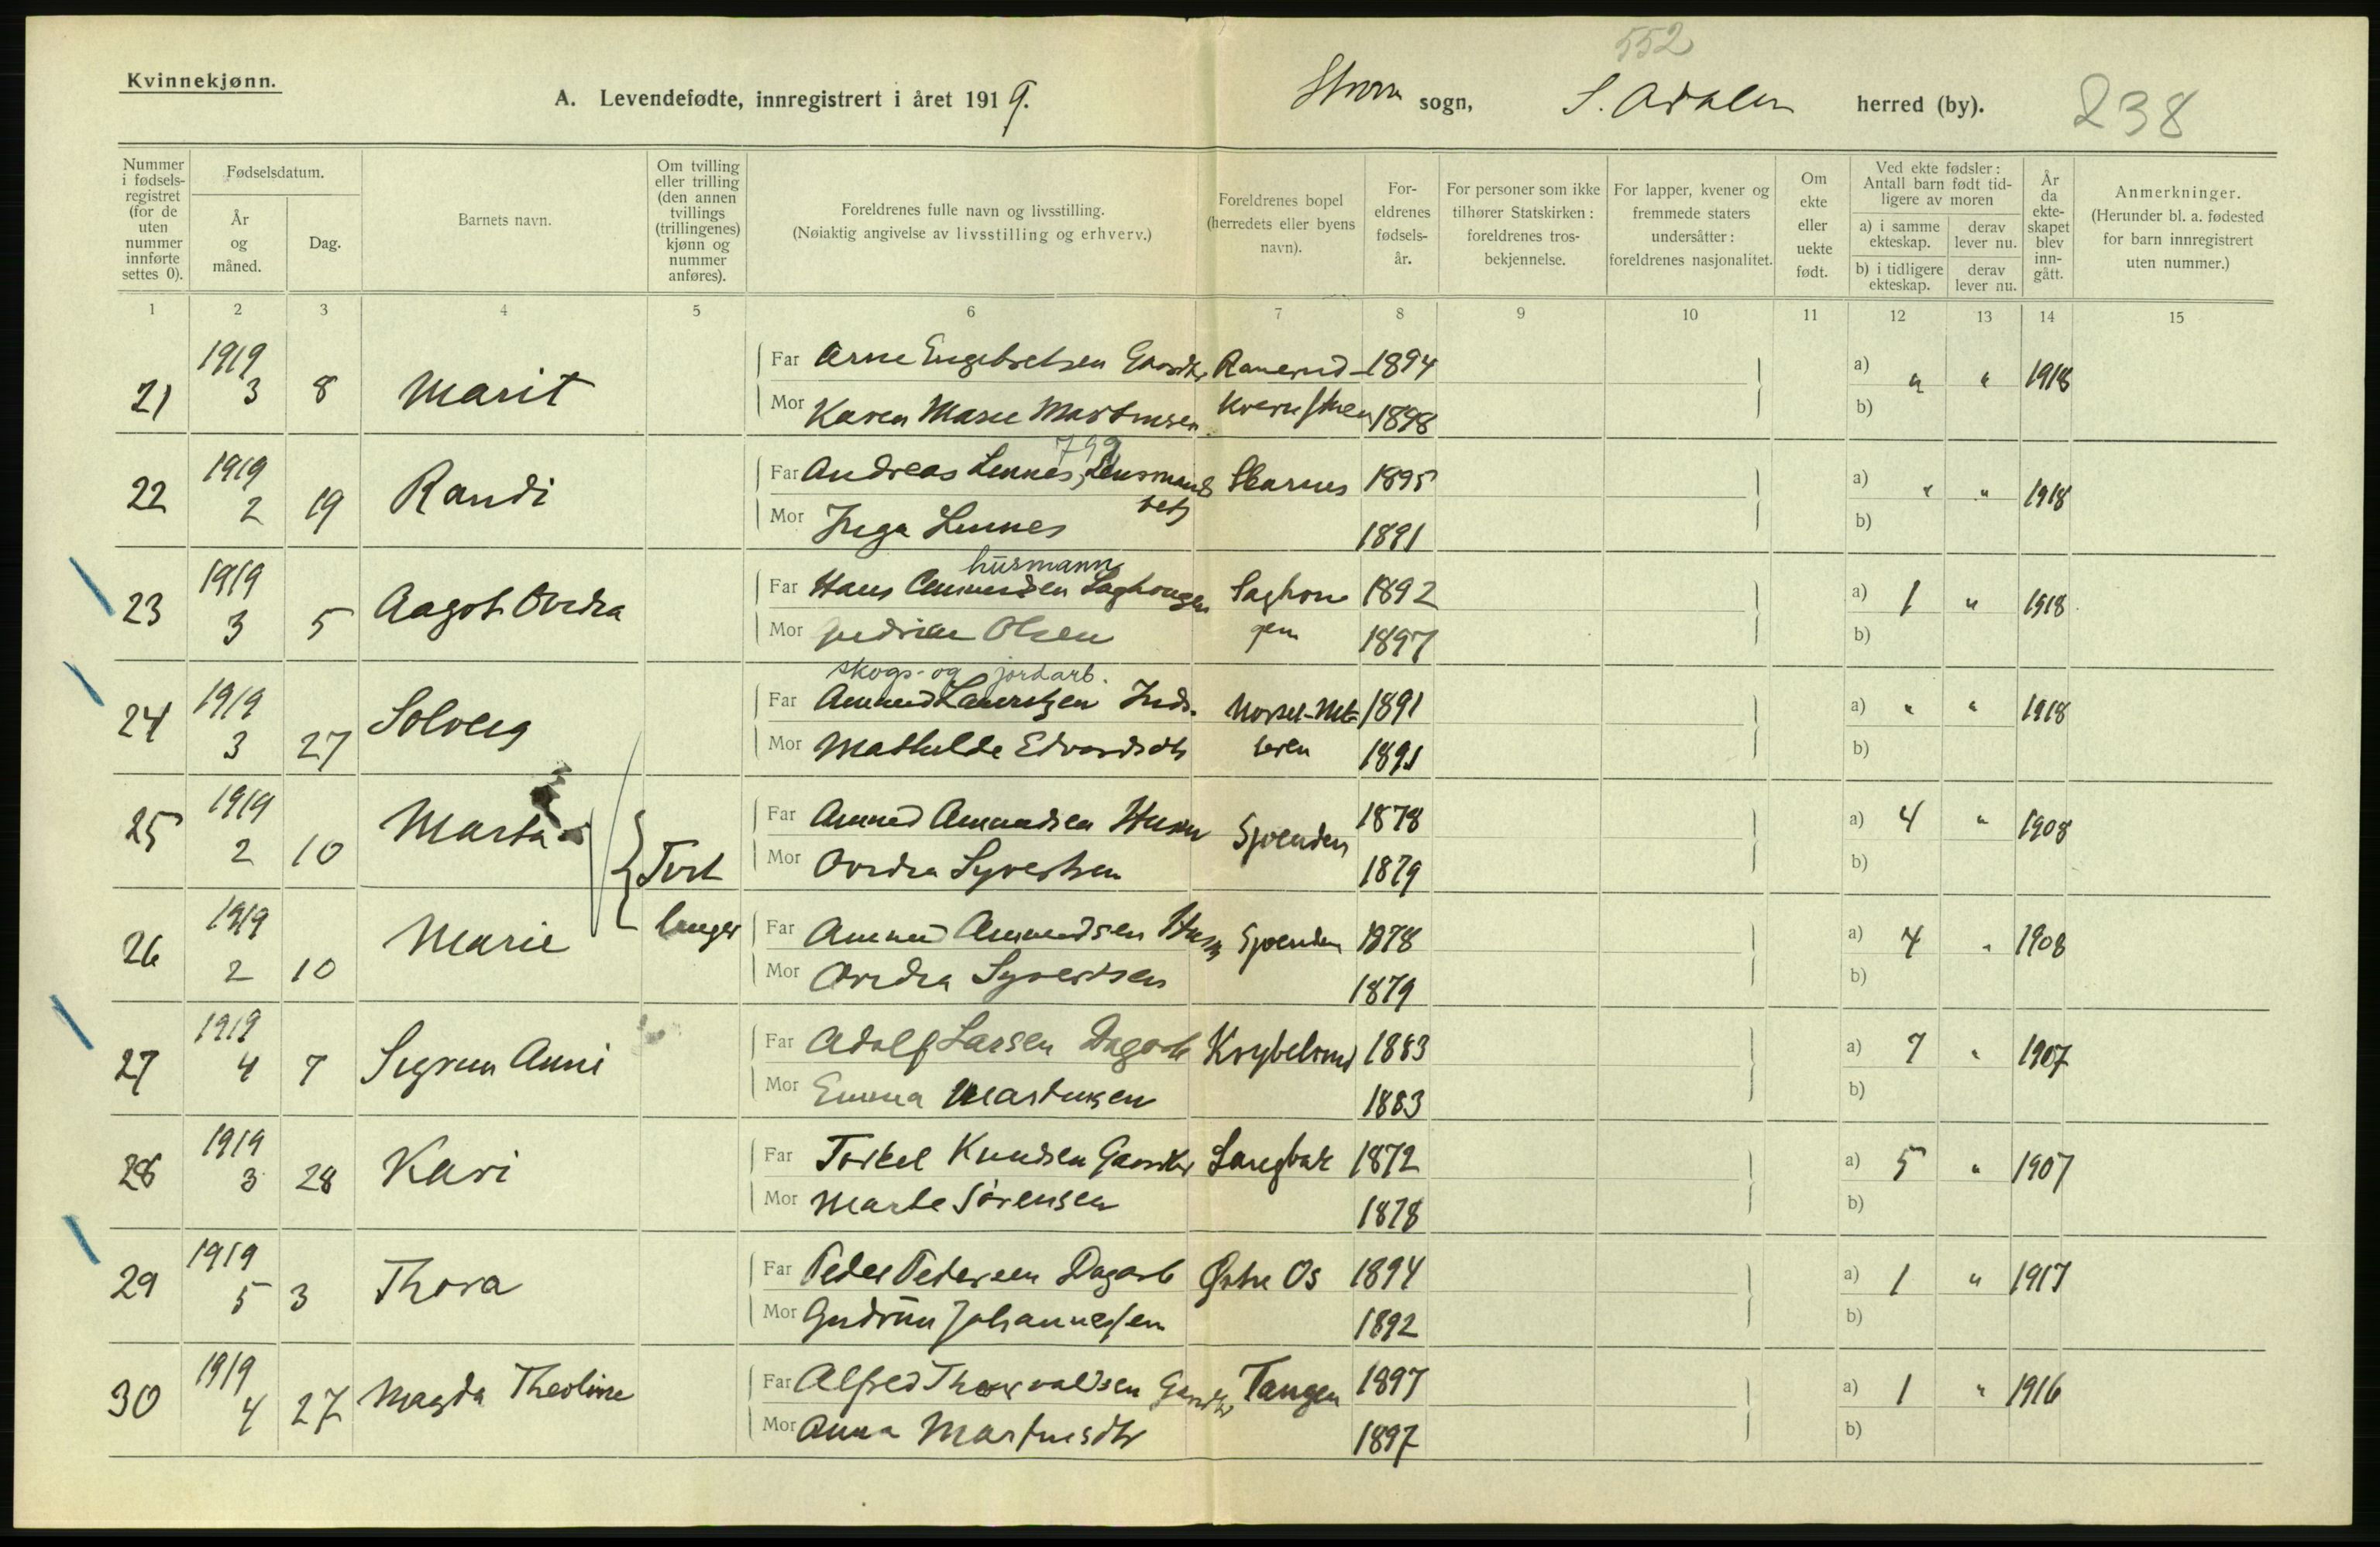 552
Kvinnekjønn.
A. Levendefødte, innregistrert i året 1919.
Strøm sogn, S. Odalen herred (by).
238
Nummer i fødsels-registret (for de uten nummer innførte settes 0).
Fødselsdatum.
År og måned.
Dag.
Barnets navn.
Om tvilling eller trilling (den annen tvillings (trillingenes) kjønn og nummer anføres).
Foreldrenes fulle navn og livsstilling.
(Nøiaktig angivelse av livsstilling og erhverv.)
Foreldrenes bopel (herredets eller byens navn).
For-eldrenes fødsels-år.
For personer som ikke tilhører Statskirken: foreldrenes tros-bekjennelse.
For lapper, kvener og fremmede staters undersåtter: foreldrenes nasjonalitet.
Om ekte eller uekte født.
Ved ekte fødsler: Antall barn født tid-ligere av moren
a) i samme ekteskap.
derav lever nu.
b) i tidligere ekteskap.
derav lever nu.
År da ekte-skapet blev inn-gått.
Anmerkninger.
(Herunder bl. a. fødested for barn innregistrert uten nummer.)
1 2 3 4 5 6 7 8 9 10 11 12 13 14 15
21 1919 3 8 Marit Far Arne Engebretsen Gaardbr 1894 a) " " 1918
Mor Karen Marie Martinsen 1898 b)
799
22 1919 2 19 Randi Far Andreas Lennes, Lensmands Skarnes 1895 a) " " 1918
betj
Mor Inga Lennes 1891 b)
husmann
23 1919 3 5 Aagot Ovidia Far Hans Amundsen Saghaugen Saghou 1892 a) 1 " 1918
Mor Olsen gen 1897 b)
skogs- og jordarb.
24 1919 3 27 Solveig Far Amund Lauritzen Inds. 1891 a) " " 1918
Mor Mathilde Edvardsdtr 1891 b)
25 1919 2 10 Marta Far Amund Amundsen Husm Spenden 1878 a) 4 " 1908
Mor Ovidia Syvertsen 1879 b)
Tvil
linger
26 1919 2 10 Marie Far Amund Amundsen Husm Spenden 1878 a) 4 " 1908
Mor Ovidia Syvertsen 1879 b)
27 1919 4 7 Sigrun Anni Far Adolf Larsen Dagarb 1883 a) 7 " 1907
Mor Emma Martinsen 1883 b)
28 1919 3 28 Kari Far Torkel Knudsen Gaardbr Langbak 1872 a) 5 " 1907
Mor Marte Sørensen 1878 b)
29 1919 5 3 Thora Far Peder Pedersen Dagarb Østre Os 1894 a) 1 " 1917
Mor Gudrun Johannessen 1892 b)
30 1919 4 27 Magda Theoline Far Alfred Thorvaldsen Gaardbr Tangen 1897 a) 1 " 1916
Mor Anna Martinsdtr 1897 b)